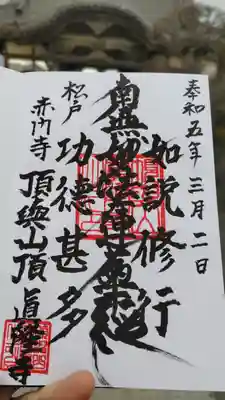 奉 和五年 三月 二日
如説修行
南無妙法蓮華経
功德甚多
松戸
赤門寺
頂山頂 真隆寺